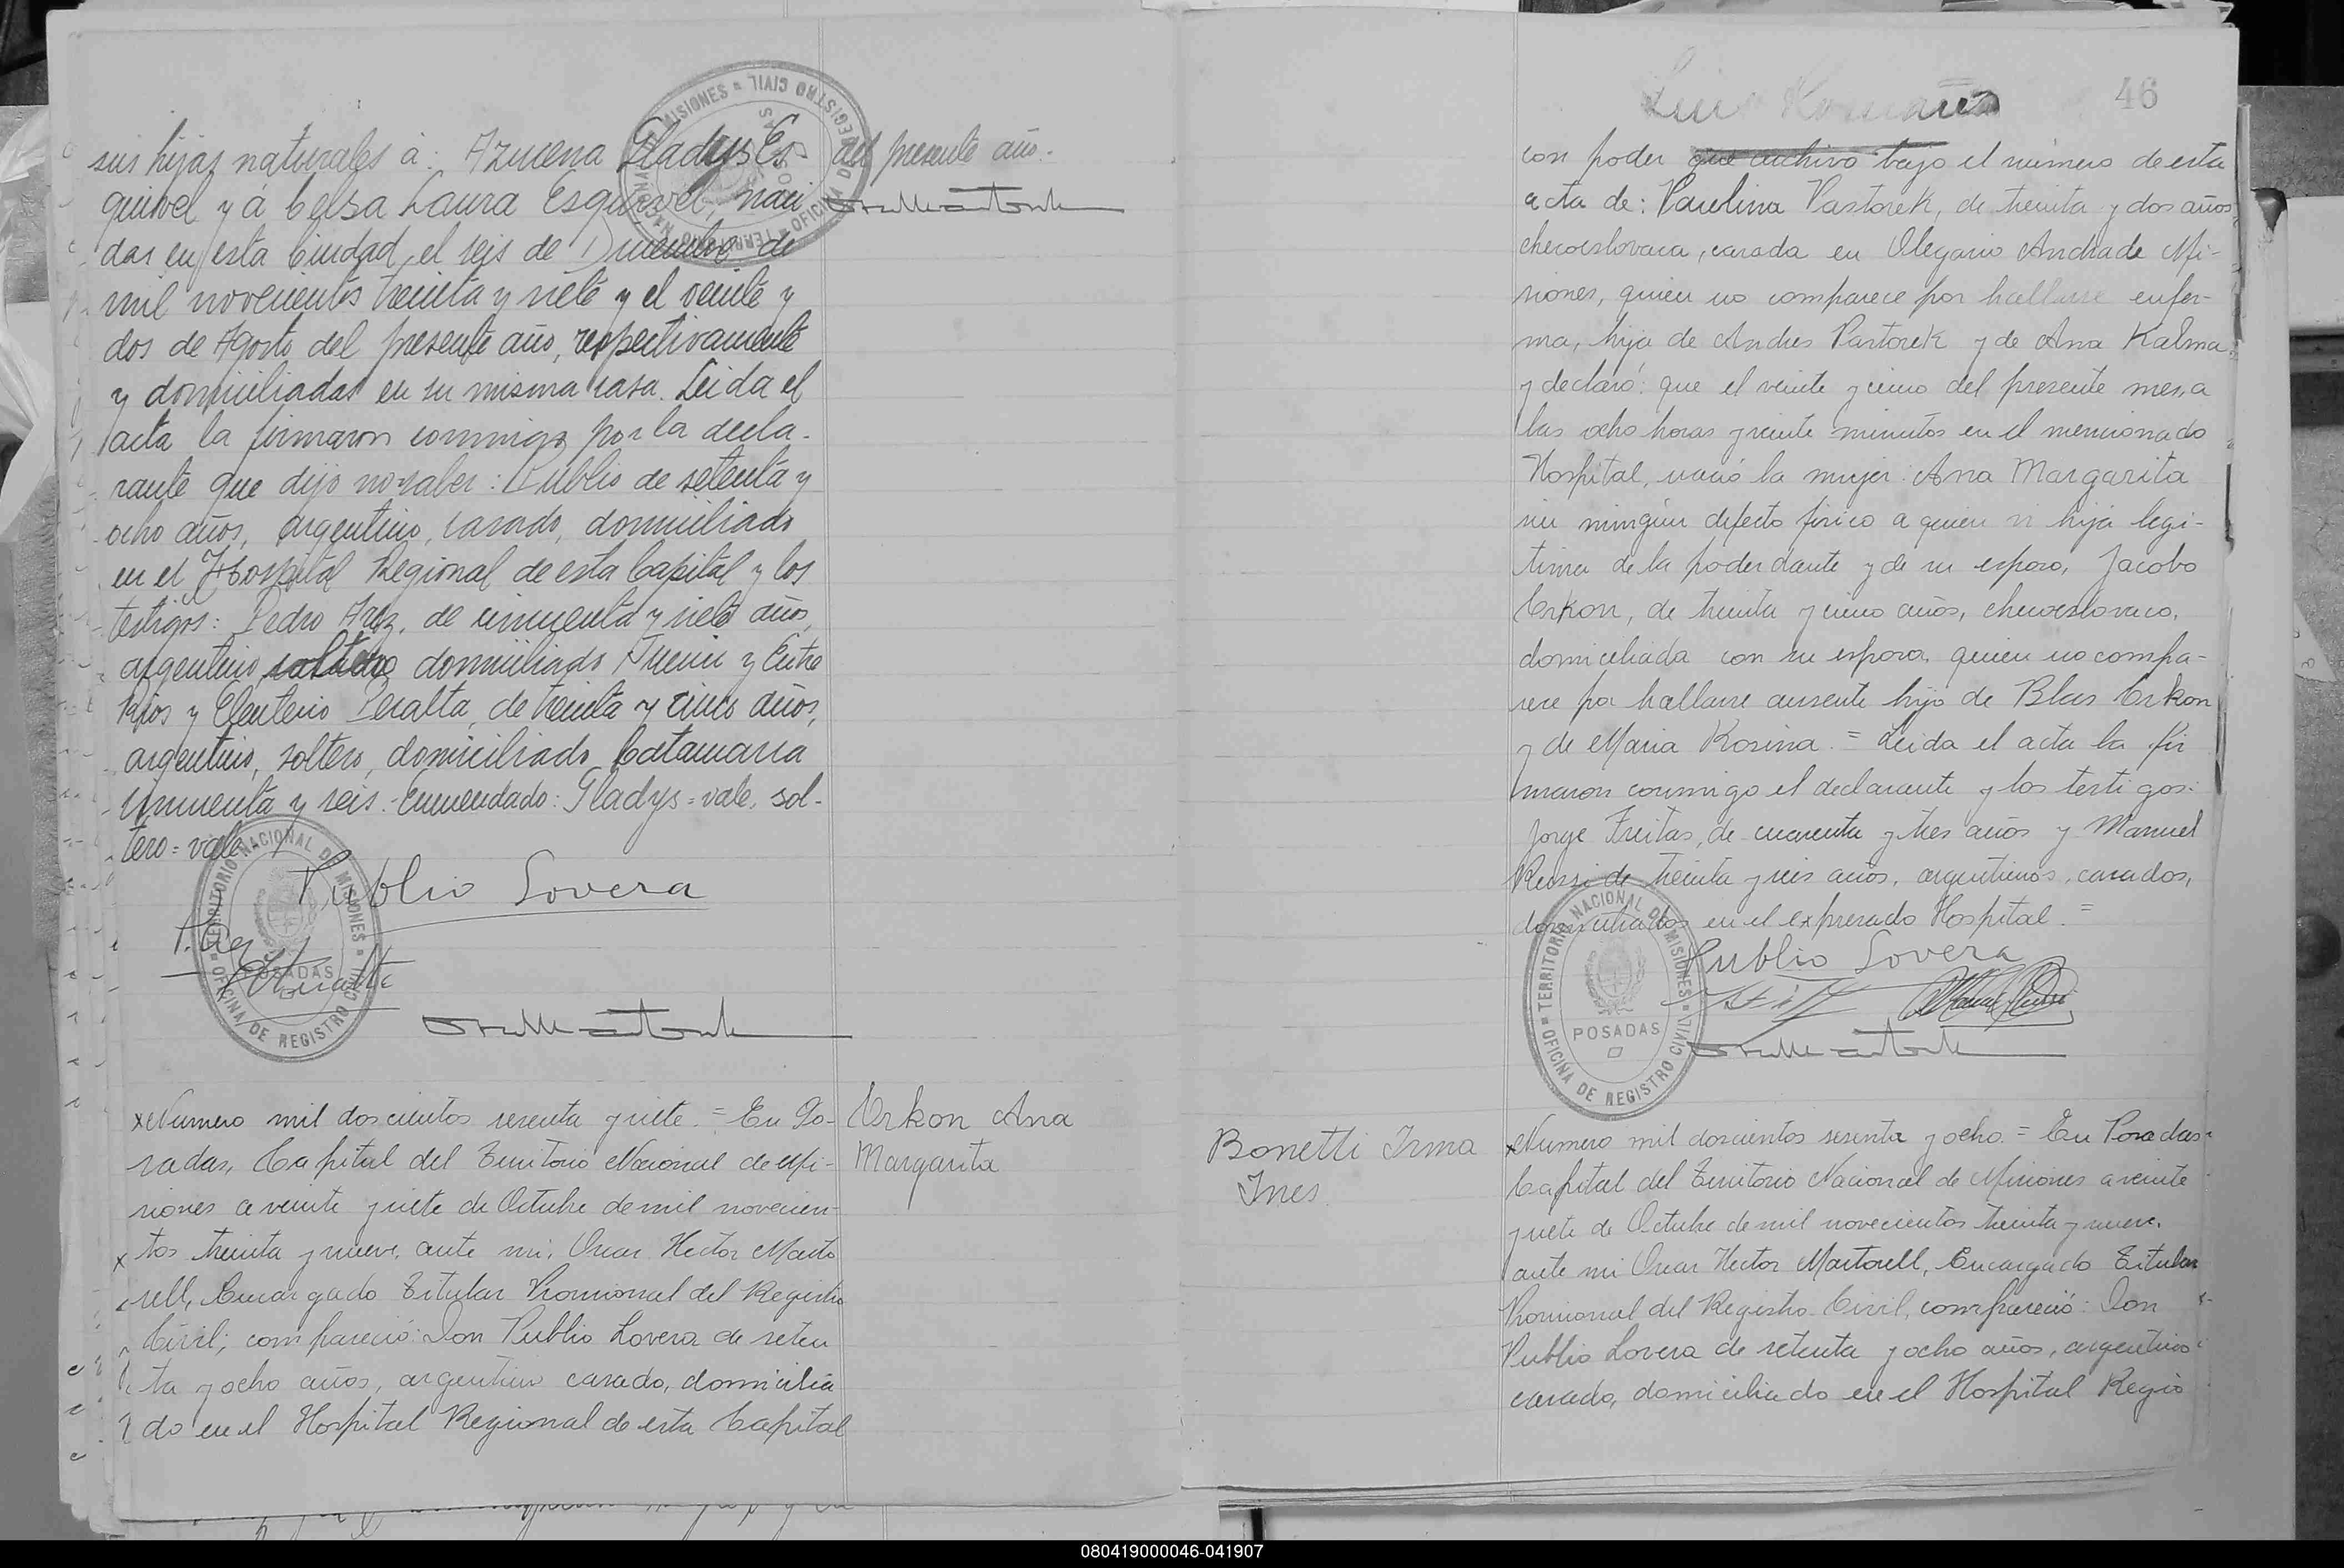 sus hijas naturales á: Azucena Gladys Es-
quivel y á Celsa Laura Esquivel, naci-
das en esta Ciudad, el seis de Diciembre de
mil novecientos treinta y siete y el veinte y
dos de Agosto del presente año, respectivamente
y domiciliadas en su misma casa. Leida el
acta la firmaron conmigo por la decla-
rante que dijo no saber: Publio de setenta y
ocho años, argentino, casado, domiciliado
en el Hospital Regional de esta Capital y los
testigos: Pedro Araz, de cincuenta y siete años,
argentino, soltero domiciliado Junin y Entre
Rios y Eleuterio Peralta, de treinta y cinco años,
argentino, soltero, domiciliado Catamarca
cincuenta y seis. Enmendado: Gladys = vale, sol-
tero = vale
Publio Lovera
TERRITORIO NACIONAL DE MISIONES
POSADAS
OFICINA DE REGISTRO CIVIL
del presente año.
TERRITORIO NACIONAL DE MISIONES
POSADAS
OFICINA DE REGISTRO CIVIL
x Numero mil doscientos sesenta y siete. = En Po-
sadas, Capital del Territorio Nacional de Mi-
siones a veinte y siete de Octubre de mil novecien-
x tos treinta y nueve, ante mi, Oscar Hector Marto
rell, Encargado Titular Provisional del Registro
Civil; compareció: Don Publio Lovera de seten
ta y ocho años, argentino casado, domicilia
do en el Hospital Regional de esta Capital
Crkon Ana
Margarita
46
con poder que archivo bajo el número de esta
acta de: Paulina Pastorek, de treinta y dos años
checoeslovaca, casada en Olegario Andrade Mi-
siones, quien no comparece por hallarse enfer-
ma, hija de Andres Pastorek y de Ana Kalma,
y declaró: que el veinte y cinco del presente mes, a
las ocho horas y veinte minutos en el mencionado
Hospital, nació la mujer: Ana Margarita
sin ningún defecto fisico a quien vi hija legi-
tima de la poderdante y de su esposo, Jacobo
Crkon, de treinta y cinco años, checoeslovaco,
domiciliada con su esposa, quien no compa-
rece por hallarse ausente hijo de Blas Crkon
y de Maria Kosina. = Leida el acta la fir
maron conmigo el declarante y los testigos:
Jorge Freitas, de cuarenta y tres años y Manuel
Russi de treinta y seis años, argentinos, casados,
domiciliados en el expresado Hospital. =
Publio Lovera
TERRITORIO NACIONAL DE MISIONES
POSADAS
OFICINA DE REGISTRO CIVIL
Bonetti Irma
Ines
x Numero mil doscientos sesenta y ocho. = En Posadas
Capital del Territorio Nacional de Misiones a veinte
y siete de Octubre de mil novecientos treinta y nueve,
ante mi Oscar Hector Martorell, Encargado Titular
Provisional del Registro Civil, compareció: Don
Publio Lovera de setenta y ocho años, argentino
casado, domiciliado en el Hospital Regio
080419000046-041907